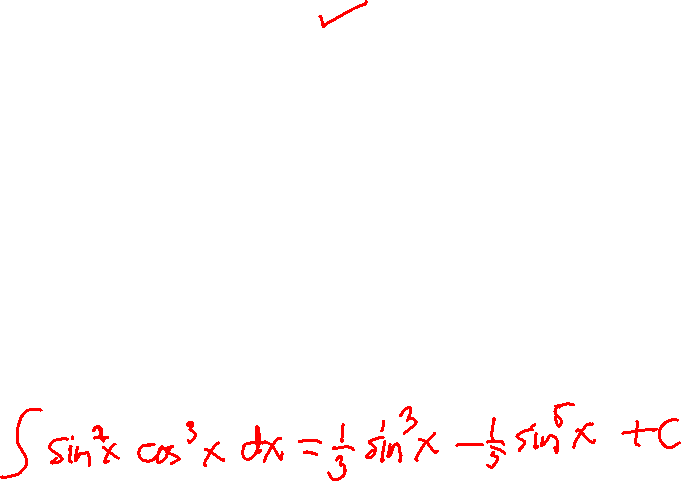 ∫ sin²x cos³x dx = 1/3 sin³x − 1/5 sin⁵x + C